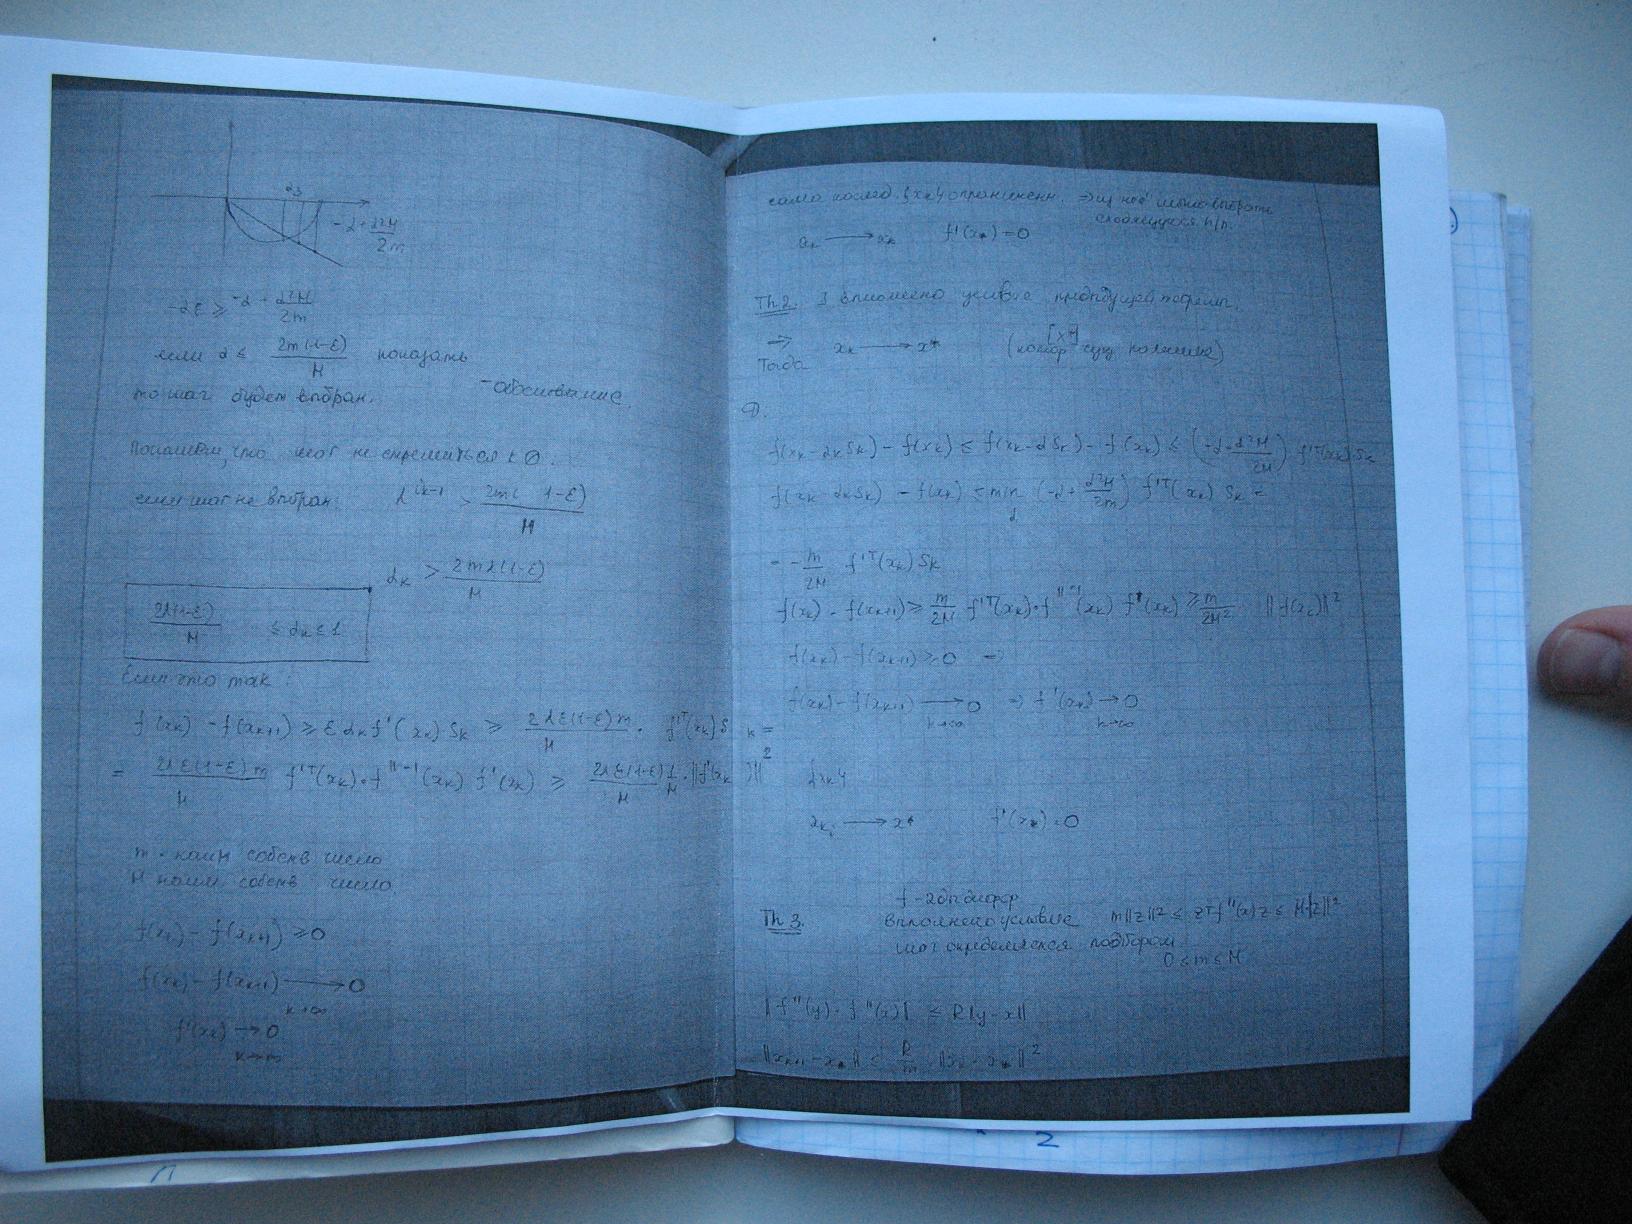 α₃
-α + α²M / 2m
-αε ≥ -α + α²M / 2m
если α ≤ 2m(1-ε) / M показать
то шаг будет выбран. - обоснование.
Покажем, что шаг не стремиться к 0.
если шаг не выбран. > 2m( 1-ε) / M
α_k > 2mλ(1-ε) / M
2λ(1-ε) / M ≤ α_k ≤ 1
Если что так:
f(x_k) - f(x_{k+1}) ≥ ε α_k f'(x_k) S_k ≥ 2λε(1-ε)m / M · f'^T(x_k) S_k =
= 2λε(1-ε)m / M f'^T(x_k) · f''^{-1}(x_k) f'(x_k) ≥ 2λε(1-ε) / M · 1 / M · ||f'(x_k)||²
m - наим собств число
M наим собств число
f(x_k) - f(x_{k+1}) ≥ 0
f(x_k) - f(x_{k+1}) ⟶ 0
k→∞
f'(x_k) → 0
k→∞
сама послед. {x_k} ограничен. ⇒ из неё можно выбрать
сходящуюся п/п.
x_k ⟶ x_* f'(x_*) = 0
Th 2. условие предыдущей теоремы.
⇒ x_k ⟶ x*
Тогда
f(x_k - α_k S_k) - f(x_k) ≤ f(x_k - α S_k) - f(x_k) ≤ (-α + α²M / 2M) f'^T(x_k) S_k
f(x_k - α_k S_k) - f(x_k) ≤ min (-α + α²M / 2m) f'^T(x_k) S_k =
α
= - m / 2M f'^T(x_k) S_k
f(x_k) - f(x_{k+1}) ≥ m / 2M f'^T(x_k) · f''^{-1}(x_k) f'(x_k) ≥ m / 2M² ||f(x_k)||²
f(x_k) - f(x_{k+1}) ≥ 0 ⇒
f(x_k) - f(x_{k+1}) ⟶ 0 ⇒ f'(x_k) → 0
k→∞ k→∞
{x_k}
x_{k_i} ⟶ x* f'(x_*) = 0
f - 2 дп дифср
Th 3. Выполнено условие m||z||² ≤ z^T f''(x) z ≤ M||z||²
шаг определяется подбором
0 ≤ m ≤ M
||f''(y) - f''(x)|| ≤ R||y - x||
||x_{k+1} - x_*|| ≤ R / m ||x_k - x_*||²
2